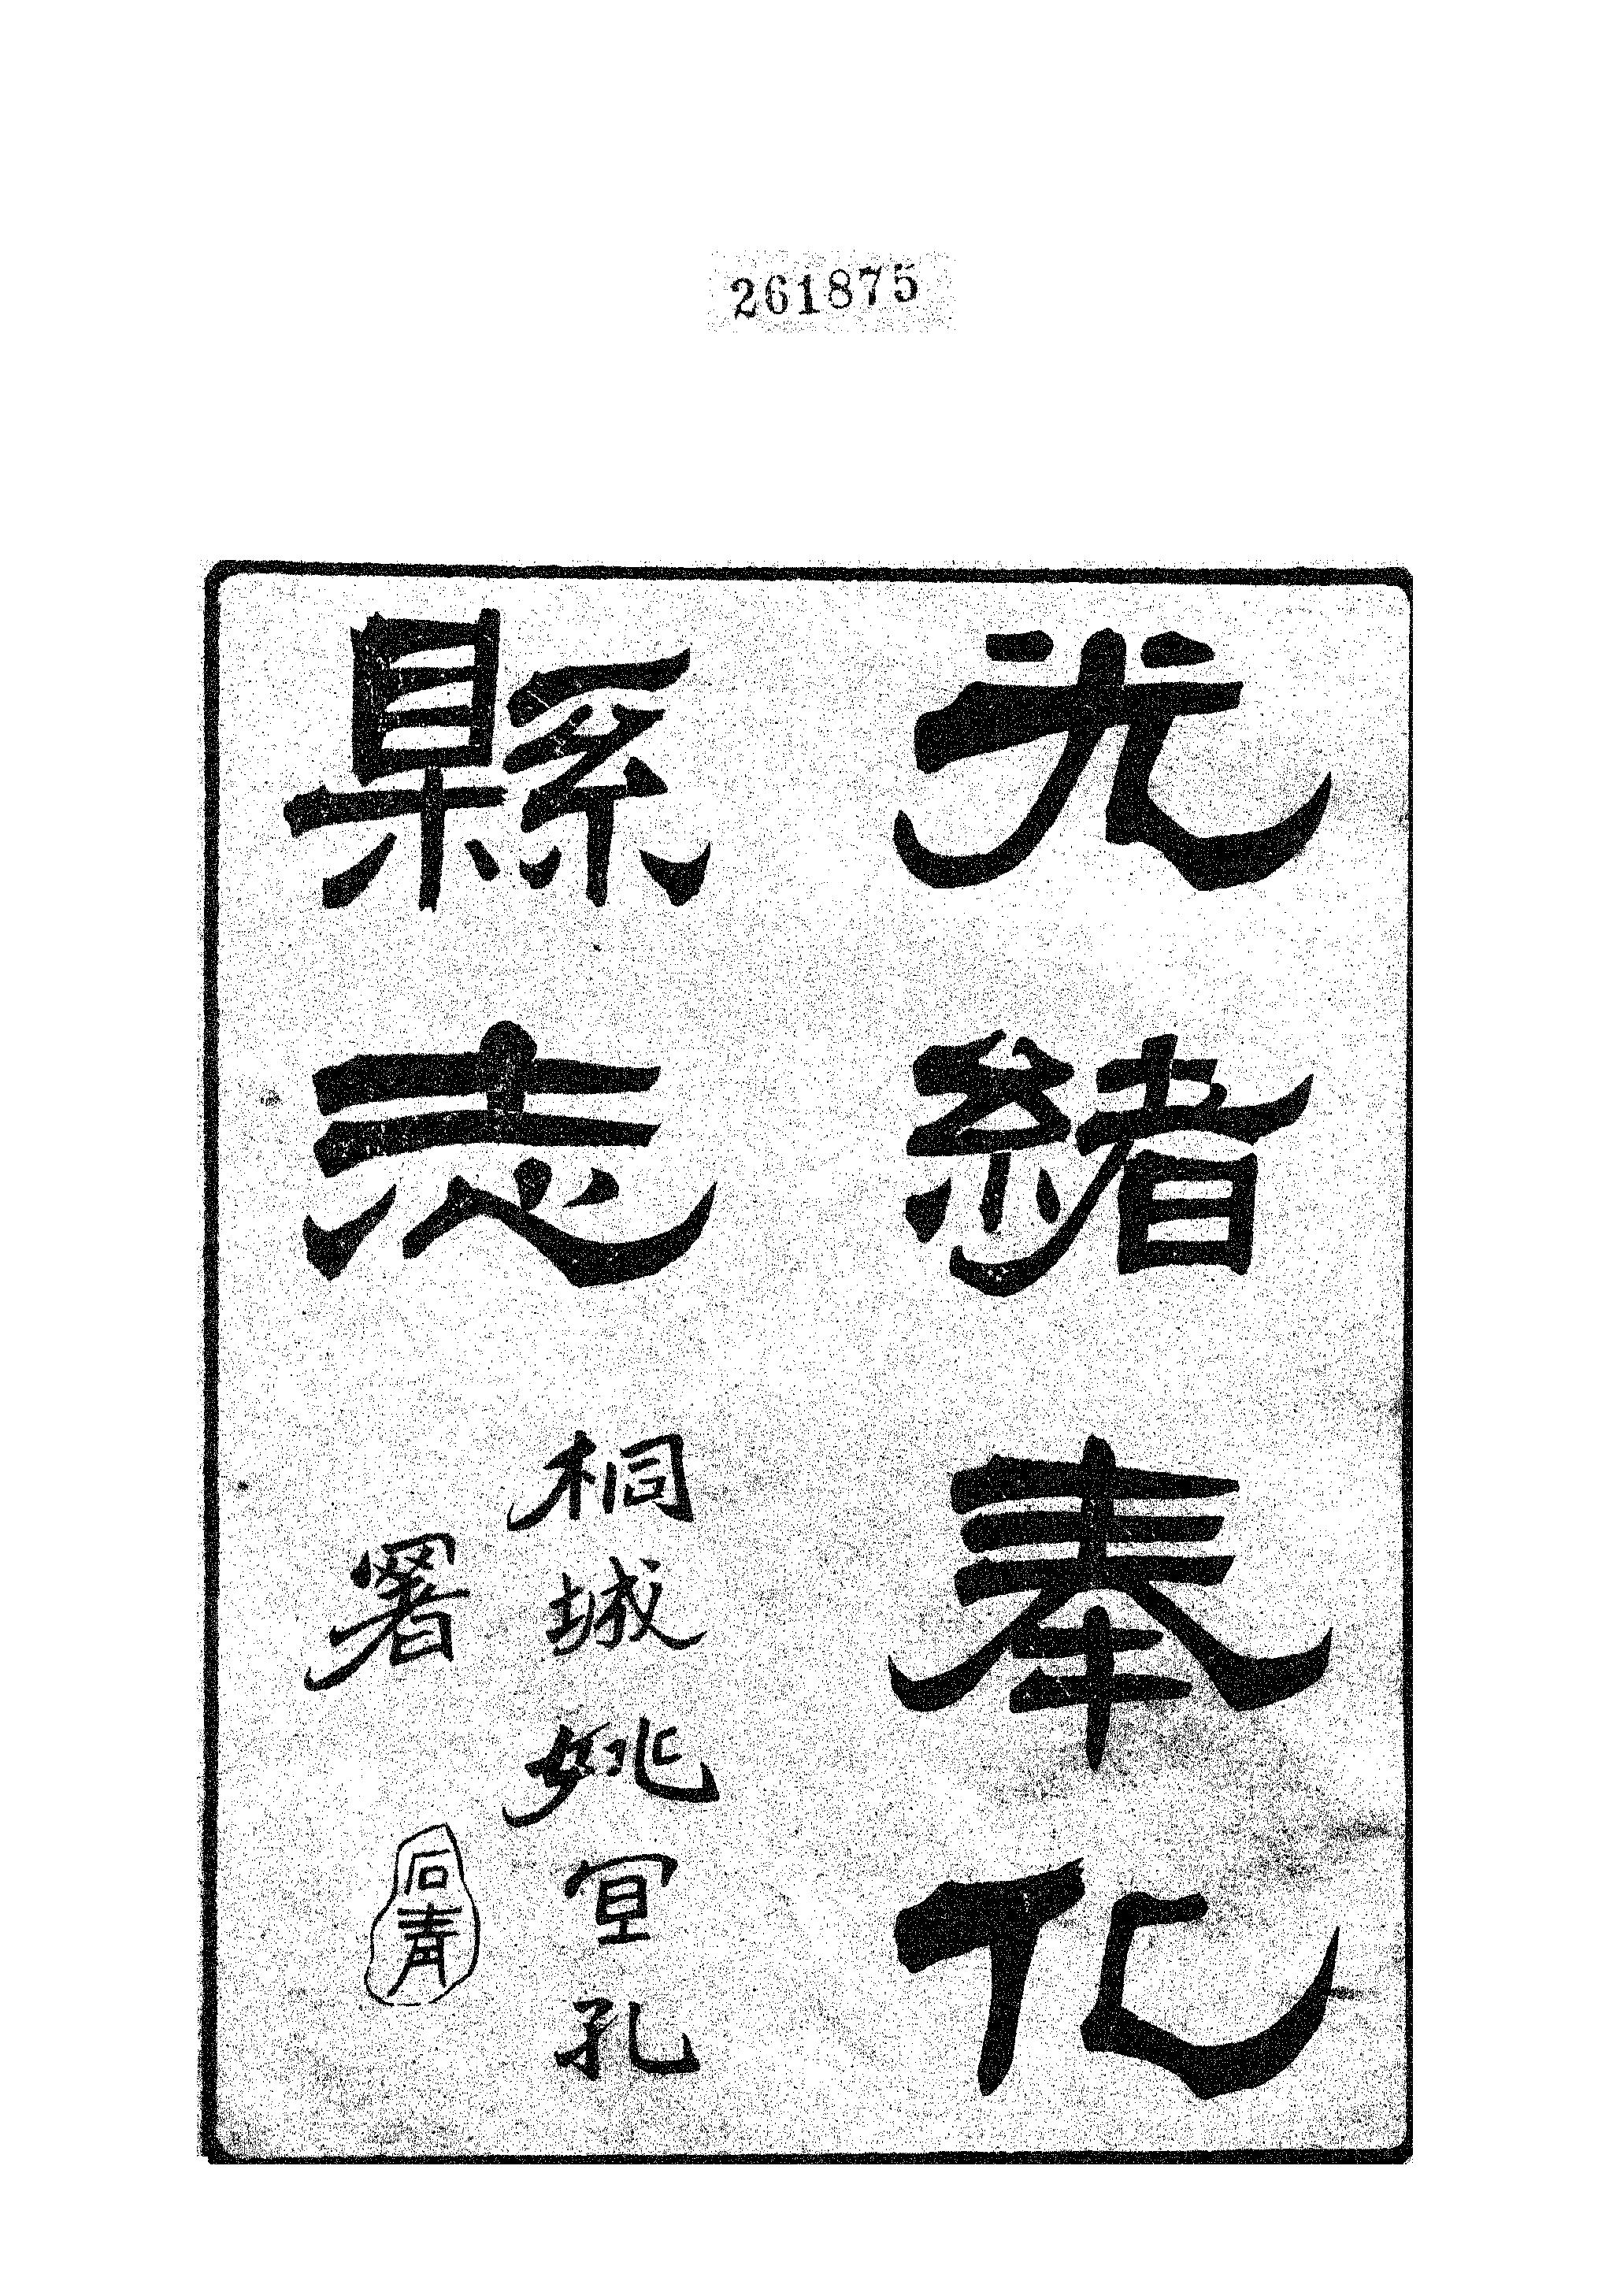 261875
光緒奉化
縣志
桐城姚宜孔
署
石青